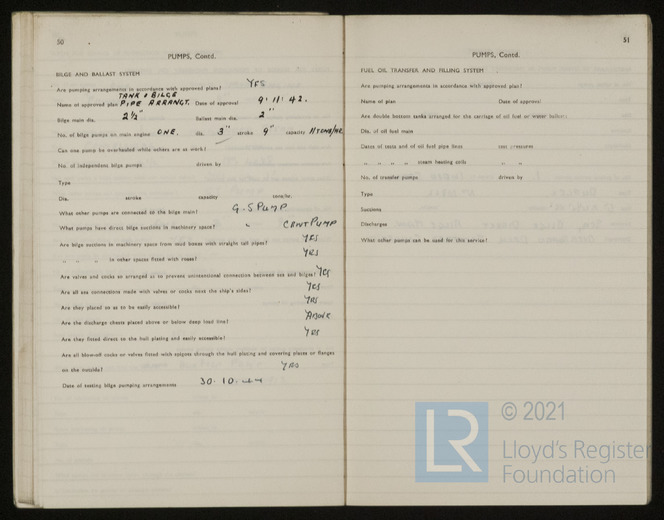 50
PUMPS, Contd.
BILGE AND BALLAST SYSTEM
Are pumping arrangements in accordance with approved plans? YES
Name of approved plan TANK & BILGE PIPE ARRANGT. Date of approval 9.11.42.
Bilge main dia. 2½" Ballast main dia. 2"
No. of bilge pumps on main engine ONE. dia. 3" stroke 9" capacity 11 TONS/HR.
Can one pump be overhauled while others are at work?
No. of independent bilge pumps driven by
Type
Dia. stroke capacity tons/hr.
What other pumps are connected to the bilge main? G.S PUMP
What pumps have direct bilge suctions in machinery space? " CENT PUMP
Are bilge suctions in machinery space from mud boxes with straight tail pipes? YES
" " " in other spaces fitted with roses? YES
Are valves and cocks so arranged as to prevent unintentional connection between sea and bilges? YES
Are all sea connections made with valves or cocks next the ship's sides? YES
Are they placed so as to be easily accessible? YES
Are the discharge chests placed above or below deep load line? ABOVE
Are they fitted direct to the hull plating and easily accessible? YES
Are all blow-off cocks or valves fitted with spigots through the hull plating and covering plates or flanges
on the outside? YES
Date of testing bilge pumping arrangements 30.10.44
51
PUMPS, Contd.
FUEL OIL TRANSFER AND FILLING SYSTEM
Are pumping arrangements in accordance with approved plan?
Name of plan Date of approval
Are double bottom tanks arranged for the carriage of oil fuel or water ballast?
Dia. of oil fuel main
Dates of tests and of oil fuel pipe lines test pressures
" " " " steam heating coils " "
No. of transfer pumps driven by
Type
Suctions
Discharges
What other pumps can be used for this service?
LR
© 2021
Lloyd's Register
Foundation